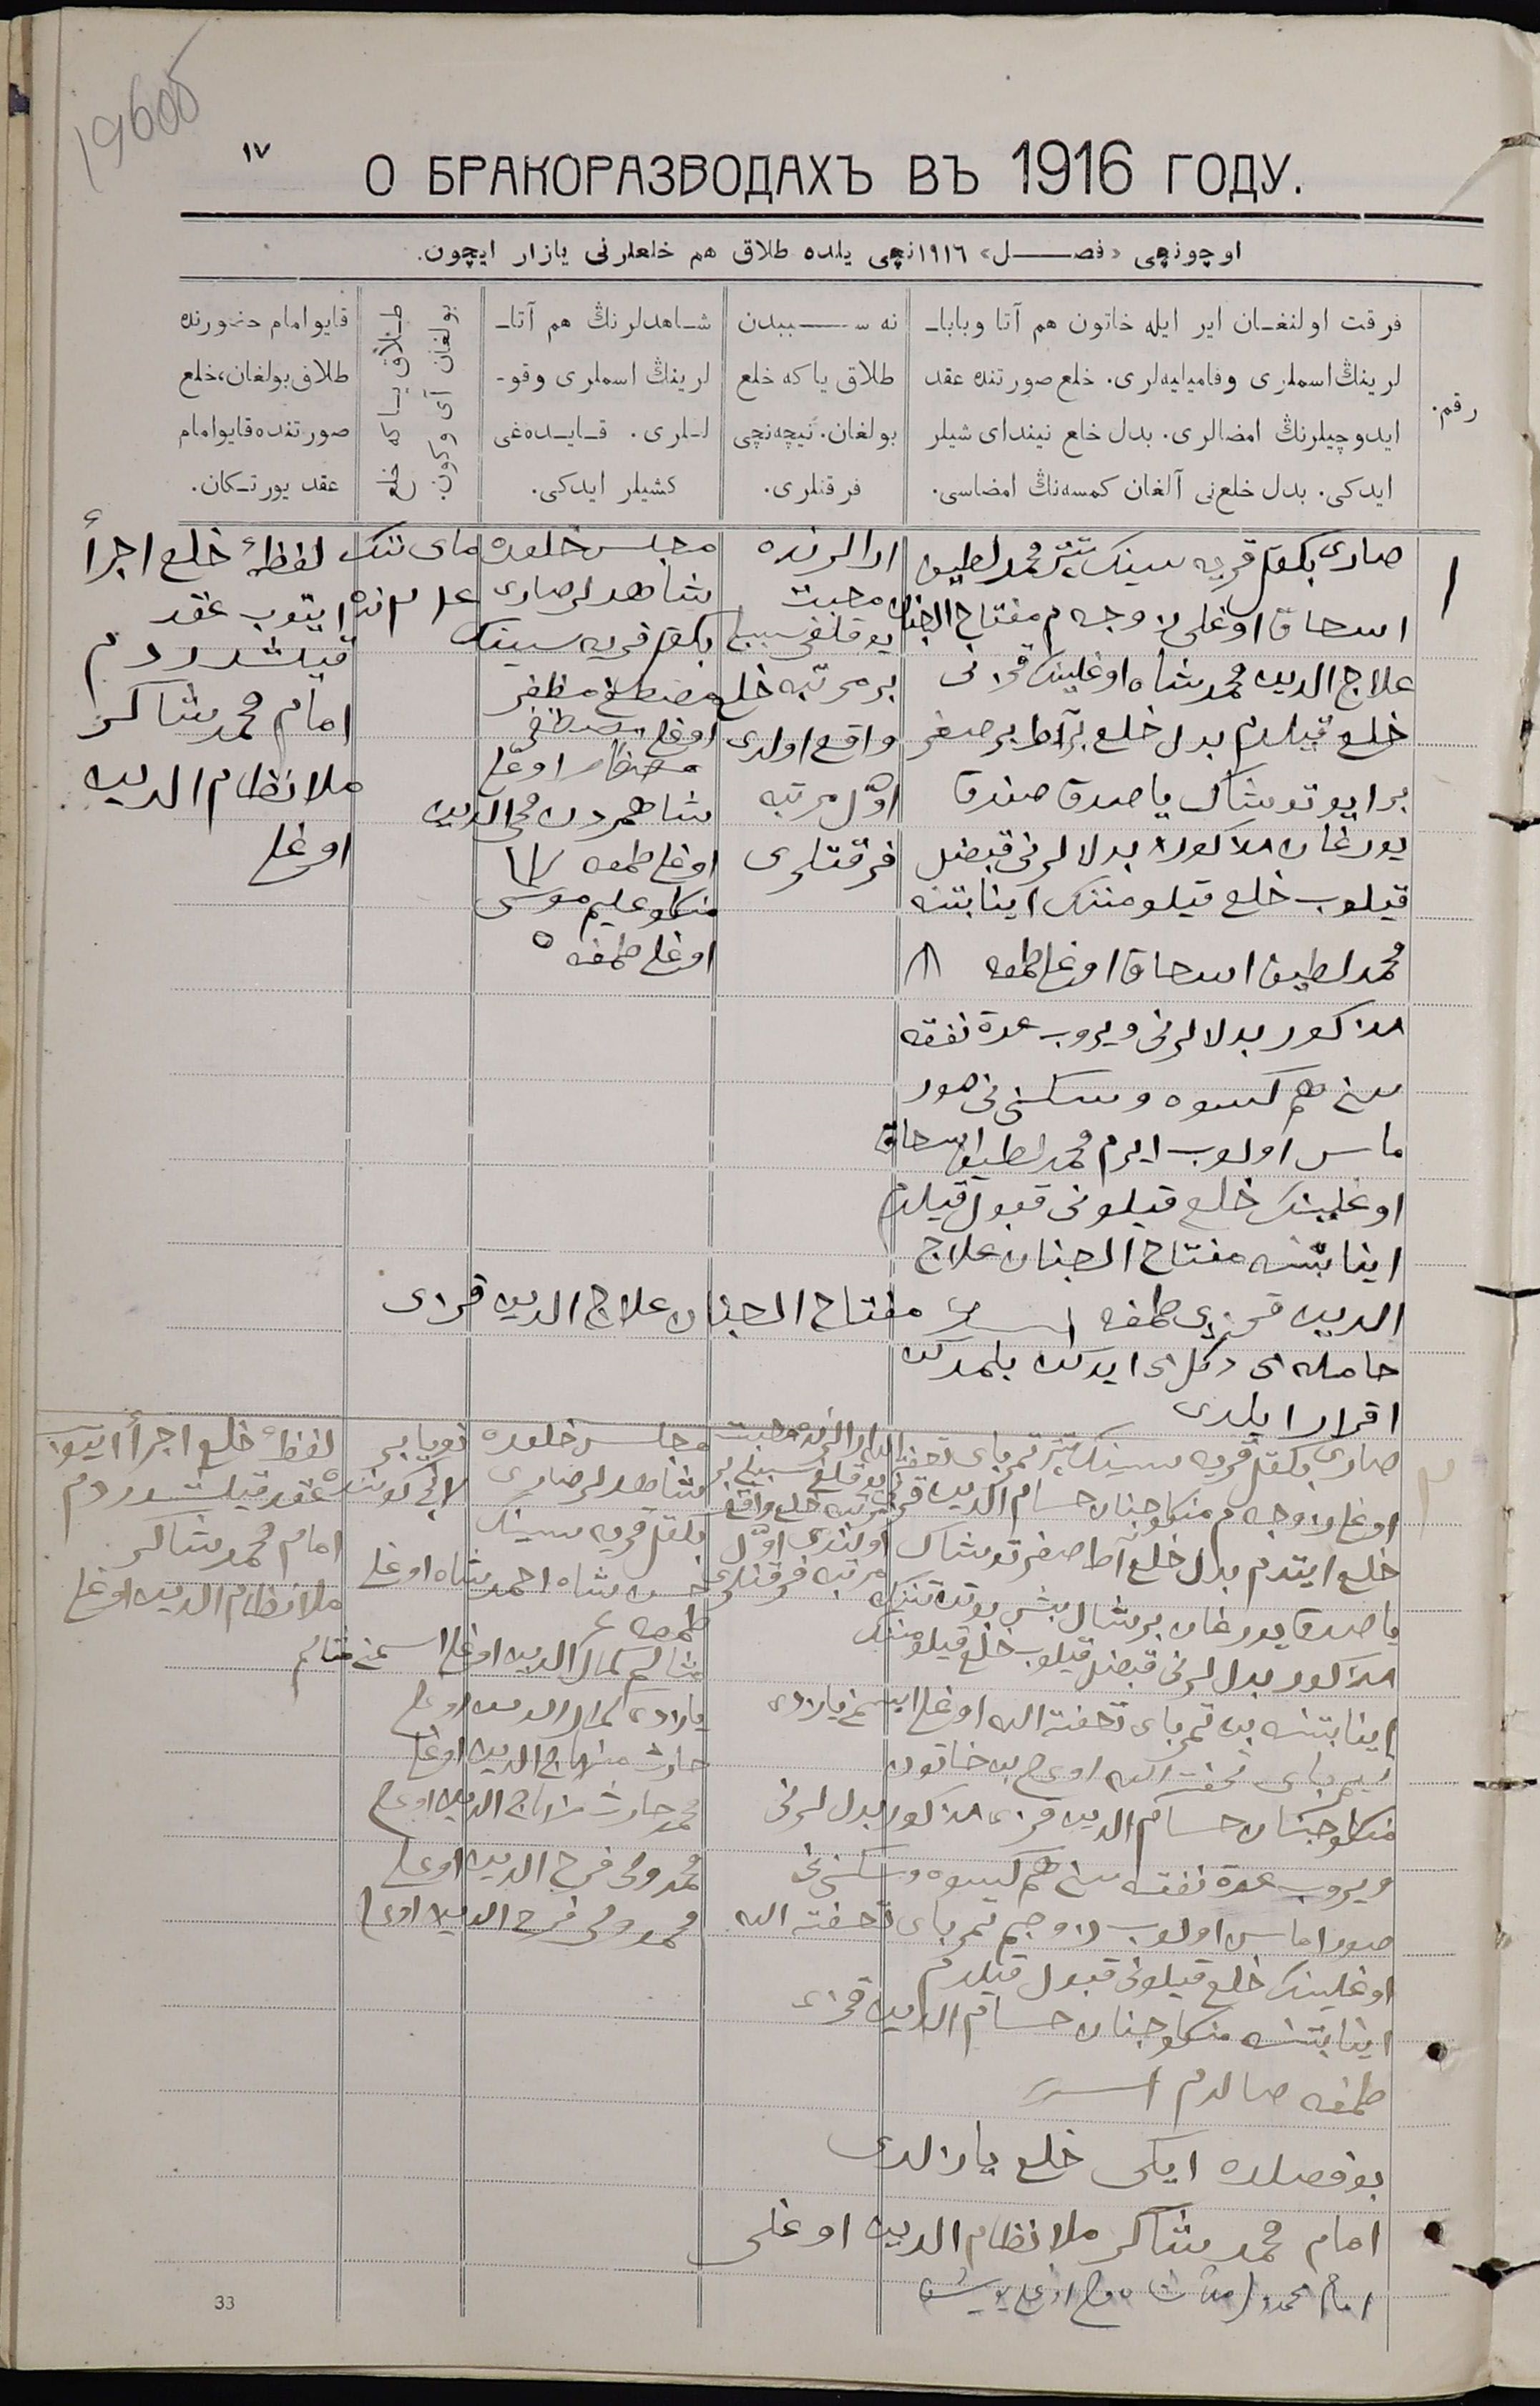 19605
١٧
О БРАКОРАЗВОДАХЪ ВЪ 1916 ГОДУ.
اوچونچی «فصـــل» ١٩١٦نچی یلده طلاق هم خلعلرنی یازار ایچون.
رقم.
فرقت اولنغـان ایر ایله خاتون هم آتا وبابا-
لرینڭ اسملری وفامیلیه‌لری. خلع صورتنده عقد
ایدوچیلرنڭ امضالری. بدل خلع نیندای شیلر
ایدکی. بدل خلع‌نی آلغان کمسه‌نڭ امضاسی.
نه ســـببدن
طلاق یا که خلع
بولغان. نیچه‌نچی
فرقتلری.
شـاهدلرنڭ هم آتا-
لرینڭ اسملری وقو-
لـلری. قـایـده‌غی
کشیلر ایدکی.
طـلاق یـا که خلع
بولغان آی وکون.
قایو امام حضورنده
طلاق بولغان، خلع
صورتنده قایو امام
عقد یورتـکان.
١
صاری بکقل قریه سینک محمد لطیف
اسحاق اوغلی زوجه م مفتاح الجنان
علاج الدین محمدشاه اوغلینک قزنی
خلع قیلدم بدل خلع بر آط بر صغر
بر ایو توشاک یاصدق صندق
یورغان مذکور بدللرنی قبض
قیلوب خلع قیلومننک اینابتنه
محمد لطیف اسحاق اوغلی طمغه
مذکور بدللرنی ویروب عدة نفقه
سنی هم کسوه وسکنی نی صور
ماس اولوب ایرم محمد لطیف اسحاق
اوغلینک خلع قیلونی قبول قیلدم
اینابتنه مفتاح الجنان علاج
الدین قزی طمغه مفتاح الجنان علاج الدین قزی
حامله می دکل می ایدکن بلمدکن
اقرار ایلدی
ارالرنده
محبت
یوقلقی سببلی
بر مرتبه خلع
واقع اولدی
اوّل مرتبه
فرقتلری
مجلس خلعده
شاهدلر صاری
بکقل قریه سینک
مصطفی مظفر
اوغلی مصطفی
مظفر اوغلی
شاهمردان محی الدین
اوغلی طمغه
منکلو علیم موسی
اوغلی طمغه
مای ننک
لفظاً خلع اجرأ
ایتوب عقد
قیلشدردم
امام محمدشاکر
ملا نظام الدین
اوغلی
٢
صاری بکقل قریه سینک تمربای تحفة الله
اوغلی زوجه م منکلوجنان حسام الدین قزنی
خلع ایتدم بدل خلع آط صغر توشاک
یاصدق یورغان بر شال بش
مذکور بدللرنی قبض قیلوب خلع قیلومننک
اینابتنه تمربای تحفة الله اوغلی
منکلوجنان حسام الدین قزی مذکور بدللرنی
ویروب عدة نفقه سنی هم کیسوه وسکنی نی
صوراماس اولوب زوجم تمربای تحفة الله
اوغلینک خلع قیلونی قبول قیلدم
اینابتنه منکلوجنان حسام الدین قزی
طمغه صالدم
ارالرنده محبت
یوقلقی سببلی بر
مرتبه خلع واقع
اولندی اوّل
مرتبه فرقتلری
مجلس خلعده
شاهدلر صاری
بکقل قریه سینک
حسن شاه احمدشاه اوغلی
طمغه
کمال الدین اوغلی
حارث منهاج الدین اوغلی
محمد حارث منهاج الدین اوغلی
محمد ولی فرح الدین اوغلی
محمد ولی فرح الدین اوغلی
نویابر
لفظاً خلع اجرأ ایتوب
عقد قیلشدردم
امام محمدشاکر
ملا نظام الدین اوغلی
بو فصلده ایکی خلع یازالدی
امام محمدشاکر ملا نظام الدین اوغلی
33